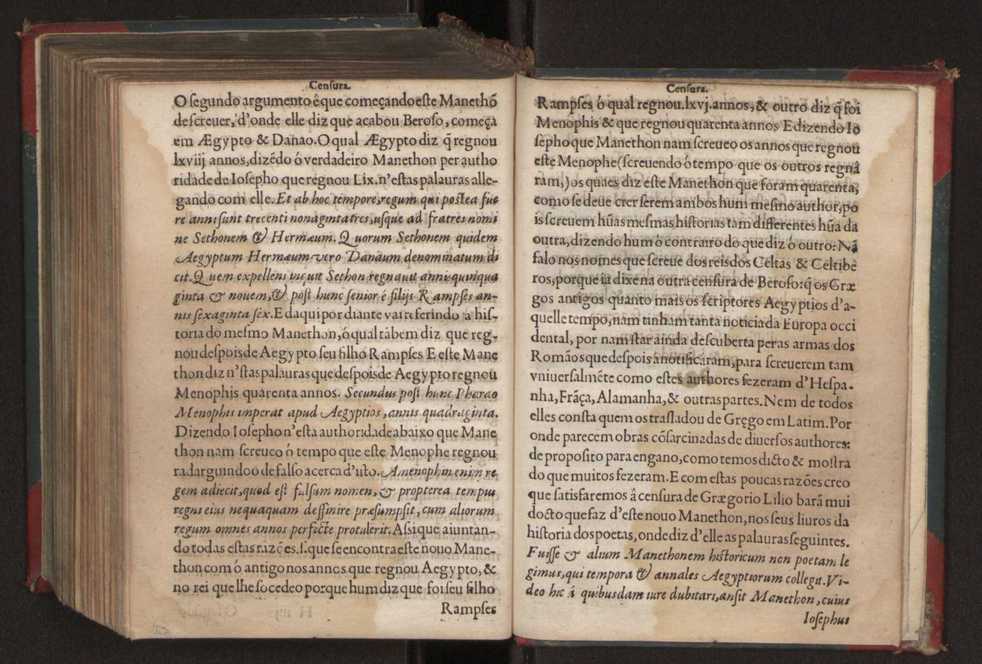 Censura.
O segundo argumento é que começando este Manethõ
de screuer, d'onde elle diz que acabou Beroso, começa
em Ægypto & Danao. O qual Ægypto diz q̃ regnou
lxviij annos, dizẽdo ó verdadeiro Manethon per autho
ridade de Iosepho que regnou Lix. n'estas palauras alle-
gando com elle. Et ab hoc tempore, regum qui postea fue
re anni sunt trecenti nonaginta tres, usque ad fratres nomi
ne Sethonem & Hermæum. Quorum Sethonem quidem
Aegyptum Hermæum vero Danaum denominatum di
cit. Quem expellens inquit Sethon regnauit annis quinqua
ginta & nouem, & post hunc senior é filijs Rampses an-
nis sexaginta sex. E daqui por diante vai referindo á his-
toria do mesmo Manethon, ó qual tãbem diz que reg-
nou despois de Aegypto seu filho Rampses E este Mane
thon diz n'stas palauras que despois de Aegypto regnou
Menophis quarenta annos. Secundus post hunc Pharao
Menophis imperat apud Aegyptios, annis quadraginta.
Dizendo Iosepho n'esta authoridade abaixo que Mane
thon nam screuco ó tempo que este Menophe regnou
radarguindoo de falso acerca d'isto. Amenophin enim re
gem adiecit, quod est falsum nomen, & propterea tempus
regni eius nequaquam deffinire præsumpsit, cum aliorum
regum omnes annos perficte protulerit. Assi que aiuntan-
do todas estas razões .s. que se encontra este nouo Mane-
thon com ó antigo nos annes que regnou Aegypto, &
no rei que lhe socedeo porque hum diz que foi seu filho
Rampses
Censura.
Rampses ó qual regnou .lxvj. annos, & outro diz q̃ foi
Menophis & que regnou quarenta annos E dizendo Io
sepho que Manethon nam screueo os annos que regnou
este Menophe (screuendo ó tempo que os outros regnã
ram,) os quaes diz este Manethon que foram quarenta,
como se deue crer serem ambos hum mesmo author, po
is screuem hũas mesmas historias tam differentes hũa da
outra, dizendo hum ó contrairo do que diz ó outro. Nã
falo nos nomes que screue dos reis dos Celtas & Celtibe
ros, porque ia dixe na outra censura de Beroso: q̃ os Græ
gos antigos quanto mais os scriptores Aegyptios d'a-
quelle tempo, nam tinham tanta noticia da Europa occi
dental, por nam star ainda descuberta peras armas dos
Romãos que despois á notificaram, para screuerem tam
vniuersalmẽte como estes authores fezeram d'Hespa-
nha, Frãça, Alamanha, & outras partes. Nem de todos
elles consta quem os trasladou de Gręgo em Latim. Por
onde parecem obras cõsarcinadas de diuersos authores:
de proposito para engano, como temos dicto & mostra
do que muitos fezeram. E com estas poucas razões creo
que satisfaremos á censura de Grægorio Lilio barã mui
docto que faz d'este nouo Manethon, nos seus liuros da
historia dos poetas, onde diz d'elle as palauras seguintes.
Fuisse & alium Manethonem historicum non poetam le
gimus, qui tempora & annales Aegyptiorum collegit. Vi-
deo hic á quibusdam iure dubitari, an sit Manethon, cuius
Iosephus